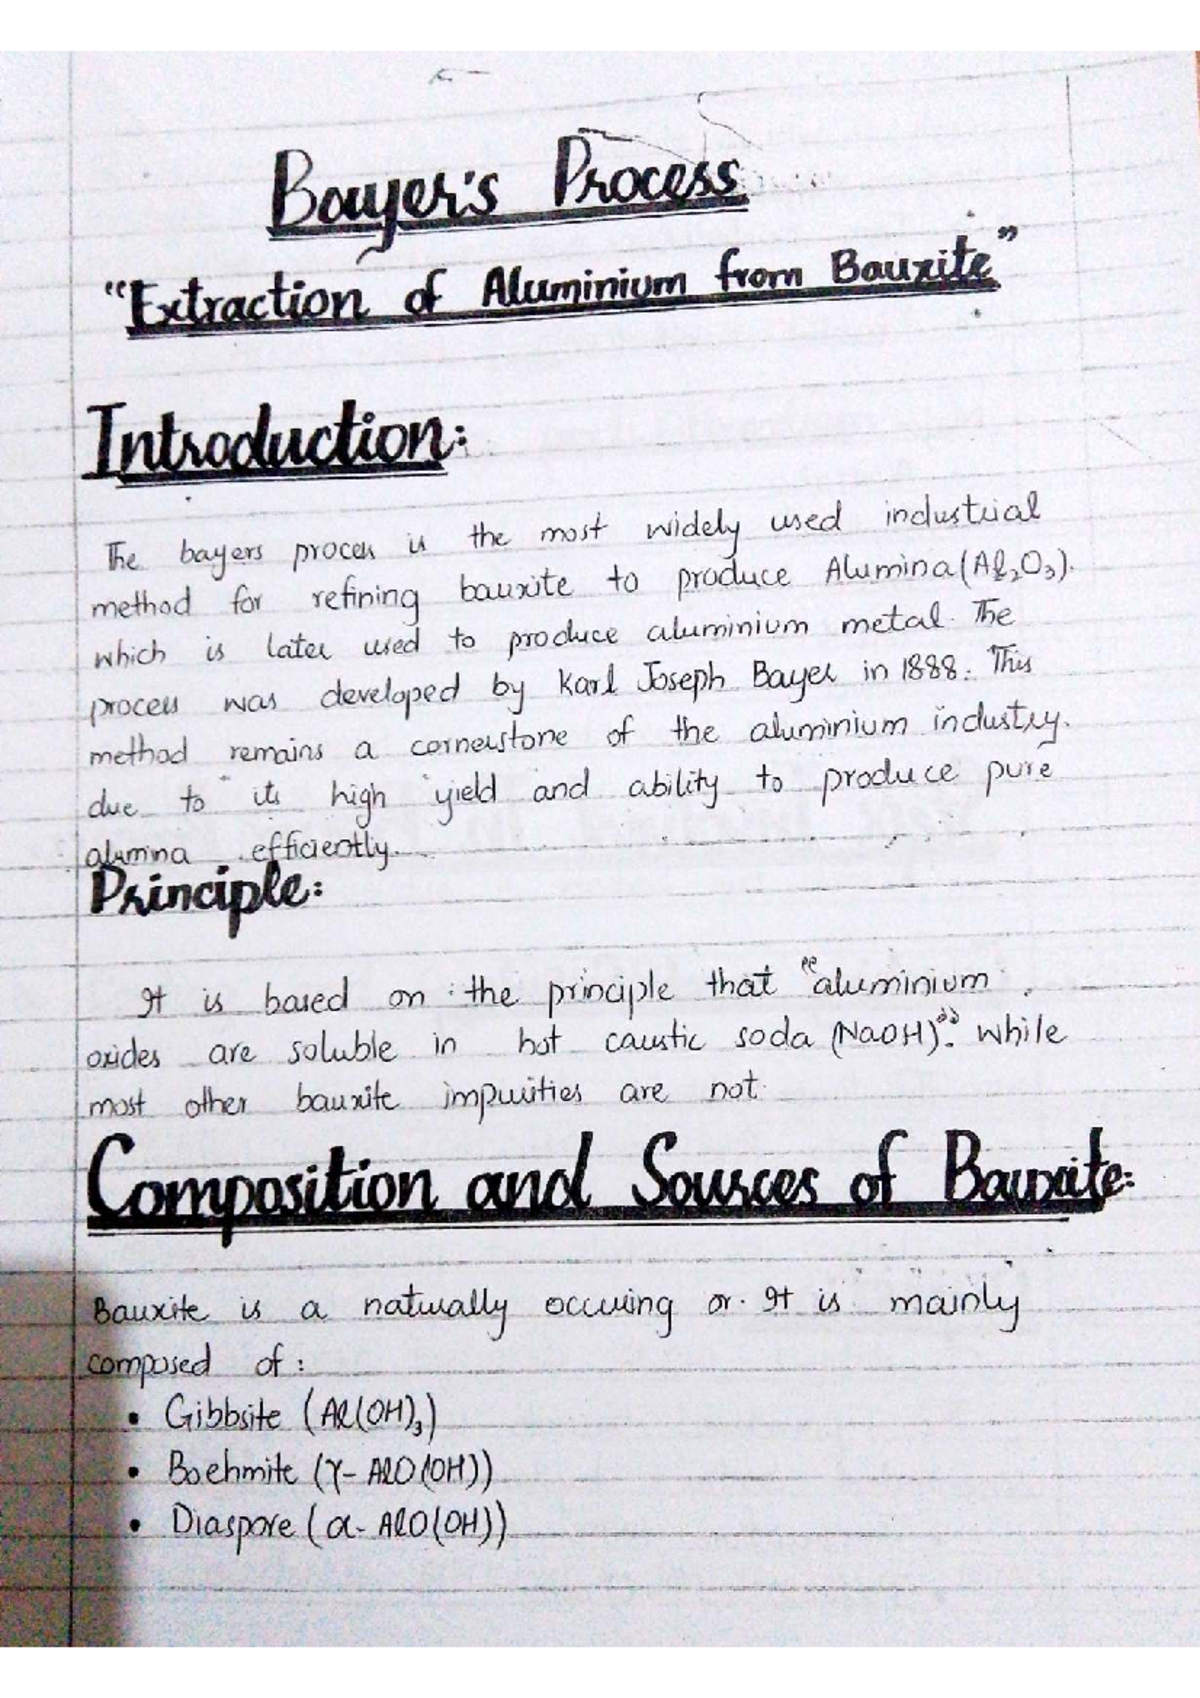 Bayer's Process
"Extraction of Aluminium from Bauxite"
Introduction:
The bayers process is the most widely used industrial
method for refining bauxite to produce Alumina (Al₂O₃).
which is later used to produce aluminium metal. The
process was developed by Karl Joseph Bayer in 1888. This
method remains a cornerstone of the aluminium industry.
due to its high yield and ability to produce pure
alumina efficiently.
Principle:
It is based on the principle that "aluminium
oxides are soluble in hot caustic soda (NaOH)". while
most other bauxite impurities are not
Composition and Sources of Bauxite:
Bauxite is a naturally occuring or. It is mainly
composed of:
• Gibbsite (Al(OH)₃)
• Boehmite (γ- AlO(OH))
• Diaspore (α- AlO(OH))